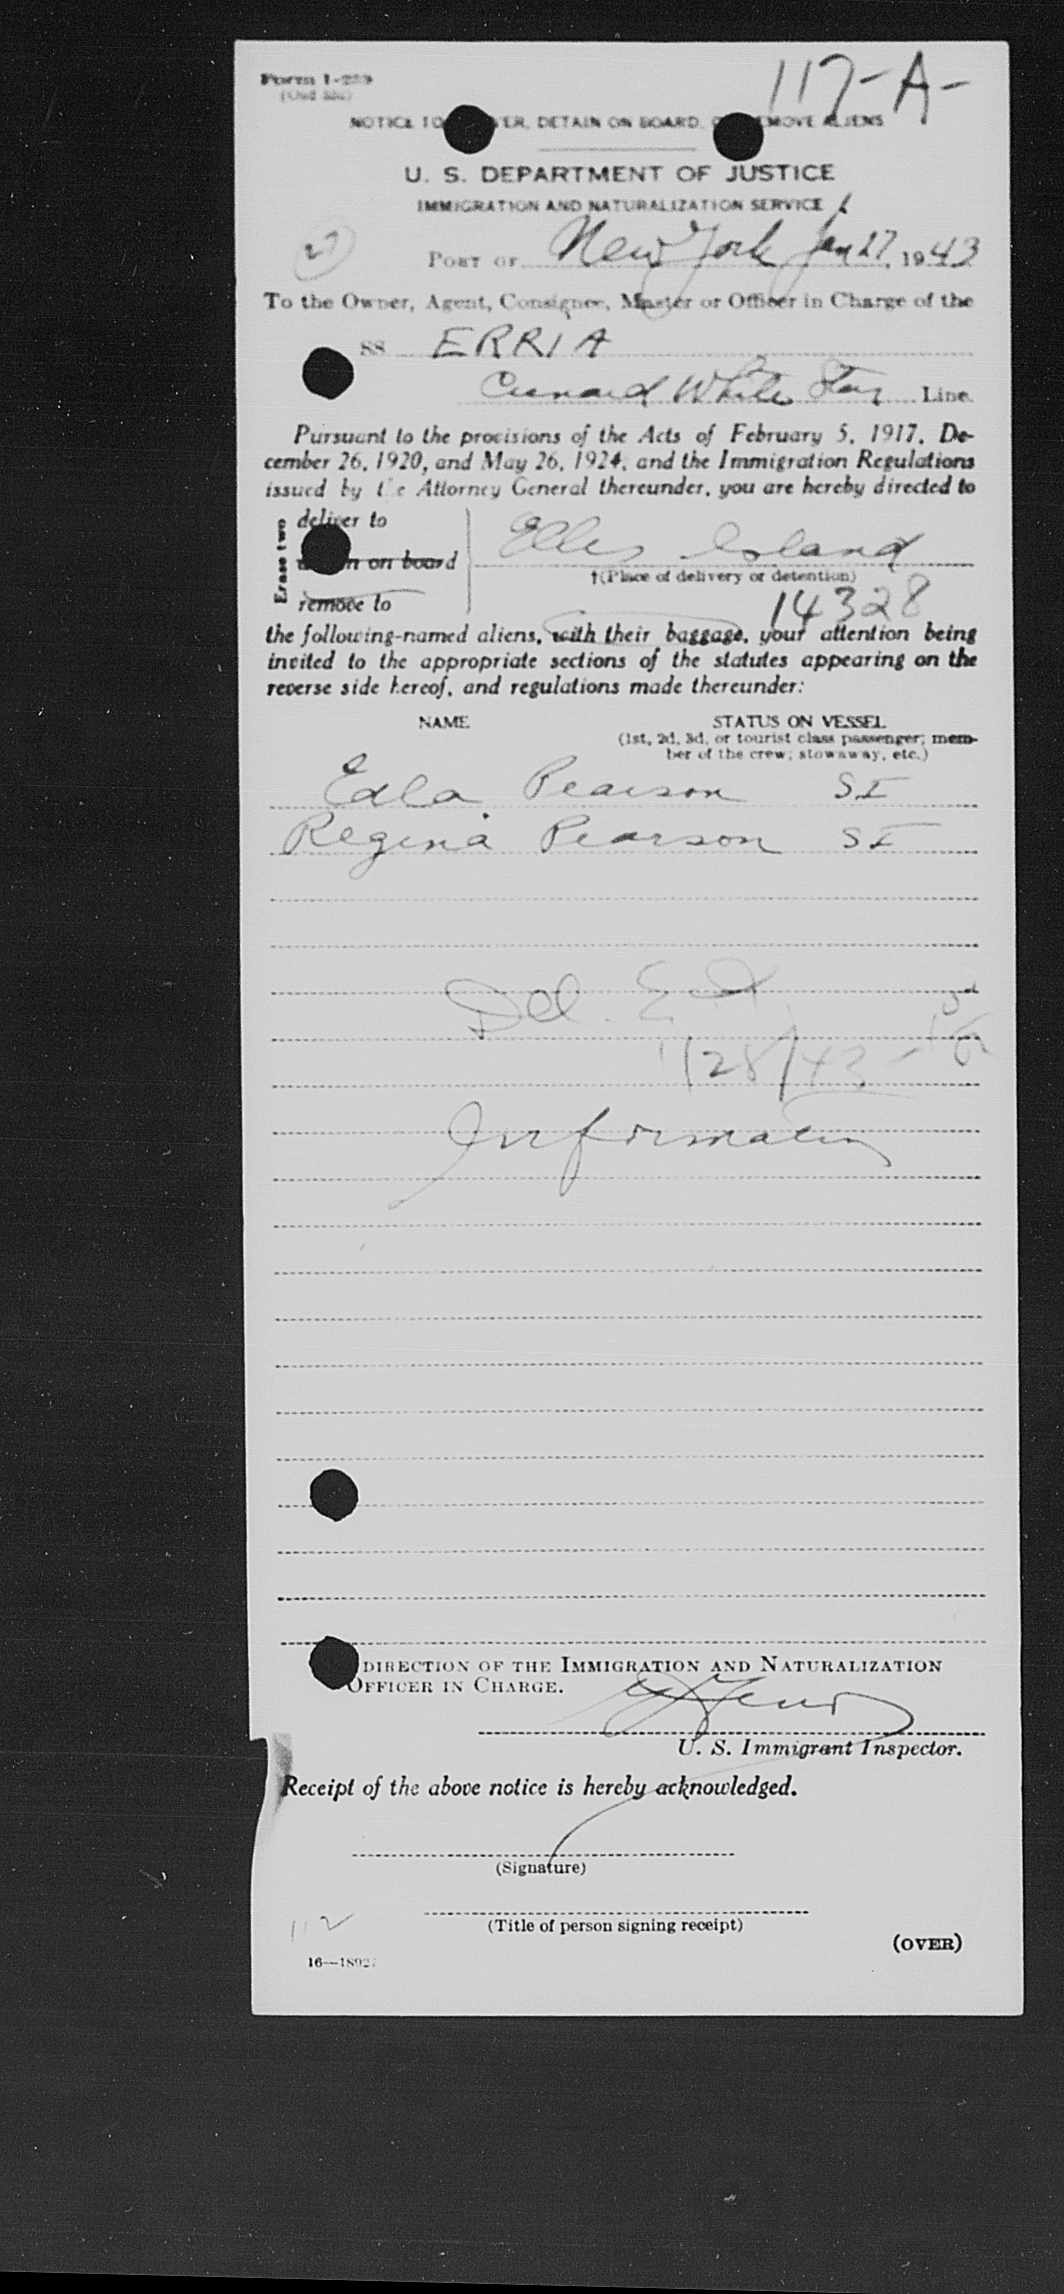 Form I-259
117-A-
NOTICE TO VER, DETAIN ON BOARD, REMOVE ALIENS
U. S. DEPARTMENT OF JUSTICE
IMMIGRATION AND NATURALIZATION SERVICE
27
PORT OF New York Jan 27, 1943
To the Owner, Agent, Consignee, Master or Officer in Charge of the
SS ERRIA
Cunard White Star Line.
Pursuant to the provisions of the Acts of February 5, 1917, De-
cember 26, 1920, and May 26, 1924, and the Immigration Regulations
issued by the Attorney General thereunder, you are hereby directed to
Erase two
deliver to
n on board
remove to
Ellis Island
†(Place of delivery or detention)
14328
the following-named aliens, with their baggage, your attention being
invited to the appropriate sections of the statutes appearing on the
reverse side hereof, and regulations made thereunder:
NAME STATUS ON VESSEL
(1st, 2d, 3d, or tourist class passenger; mem-
ber of the crew; stowaway, etc.)
Edla Pearson SI
Regina Pearson SI
Del. E I
1/28/43
Information
DIRECTION OF THE IMMIGRATION AND NATURALIZATION
OFFICER IN CHARGE.
U. S. Immigrant Inspector.
Receipt of the above notice is hereby acknowledged.
(Signature)
(Title of person signing receipt)
112
(OVER)
16—18927